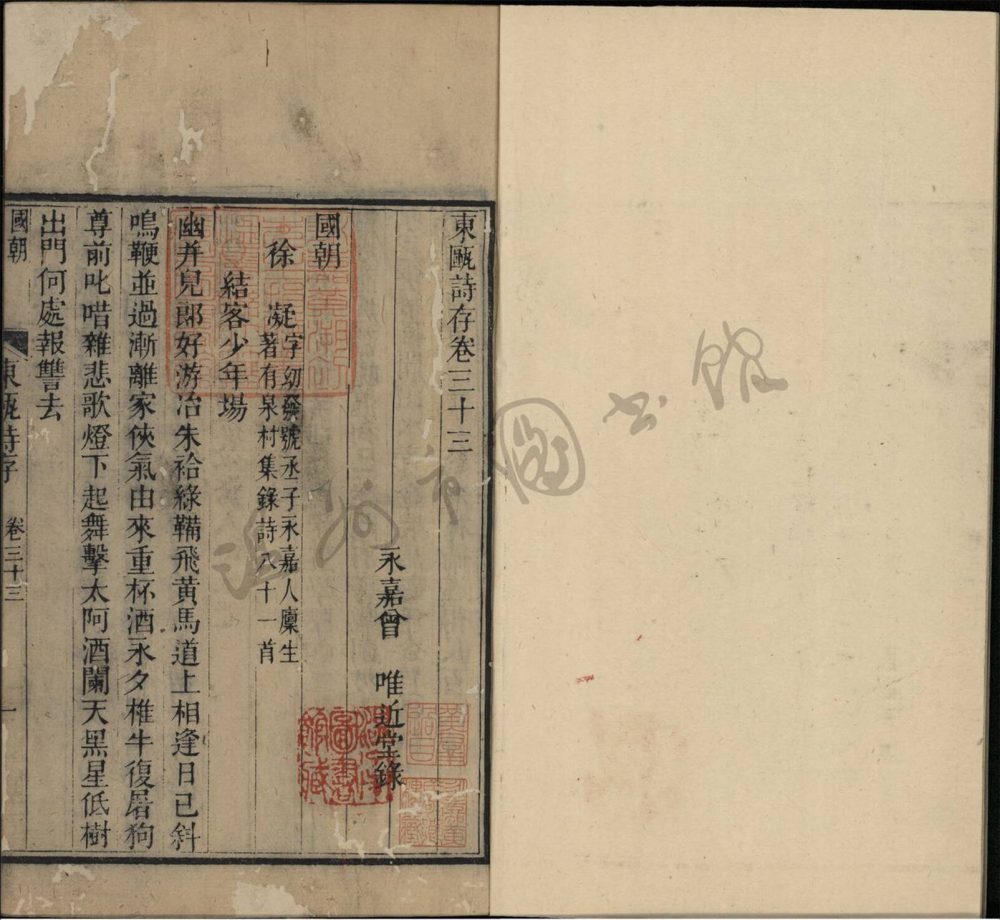 東甌詩存卷三十三
永嘉曾　唯近堂錄
國朝
徐　凝字幼發號丞子永嘉人廩生
著有泉村集錄詩八十一首
結客少年場
幽并兒郎好游冶朱袷綠鞲飛黃馬道上相逢日已斜
鳴鞭並過漸離家俠氣由來重杯酒永夕椎牛復屠狗
尊前叱咤雜悲歌燈下起舞擊太阿酒闌天黑星低樹
出門何處報讐去
國朝
東甌詩存
卷三十三
一
溫州市圖書館
溫州市圖書館藏